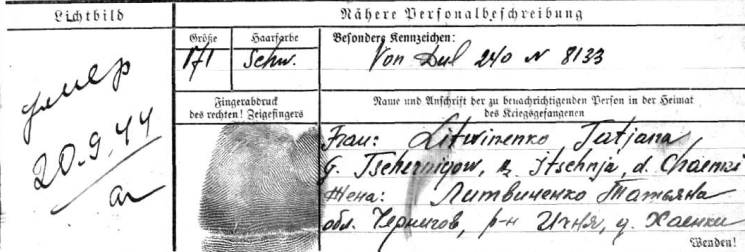 Lichtbild
Nähere Personalbeschreibung
Größe
171
Haarfarbe
Schw.
Besondere Kennzeichen:
Von Dul 240 N 8133
умер
20.9.44
Fingerabdruck
des rechten! Zeigefingers
Name und Anschrift der zu benachrichtigenden Person in der Heimat
des Kriegsgefangenen
Frau: Litwinenko Tatjana
G. Tschernigow, R. Itschnja, d. Chaenki
Жена: Литвиненко Татьяна
обл. Чернигов, р-н Ичня, д. Хаенки
Wenden!